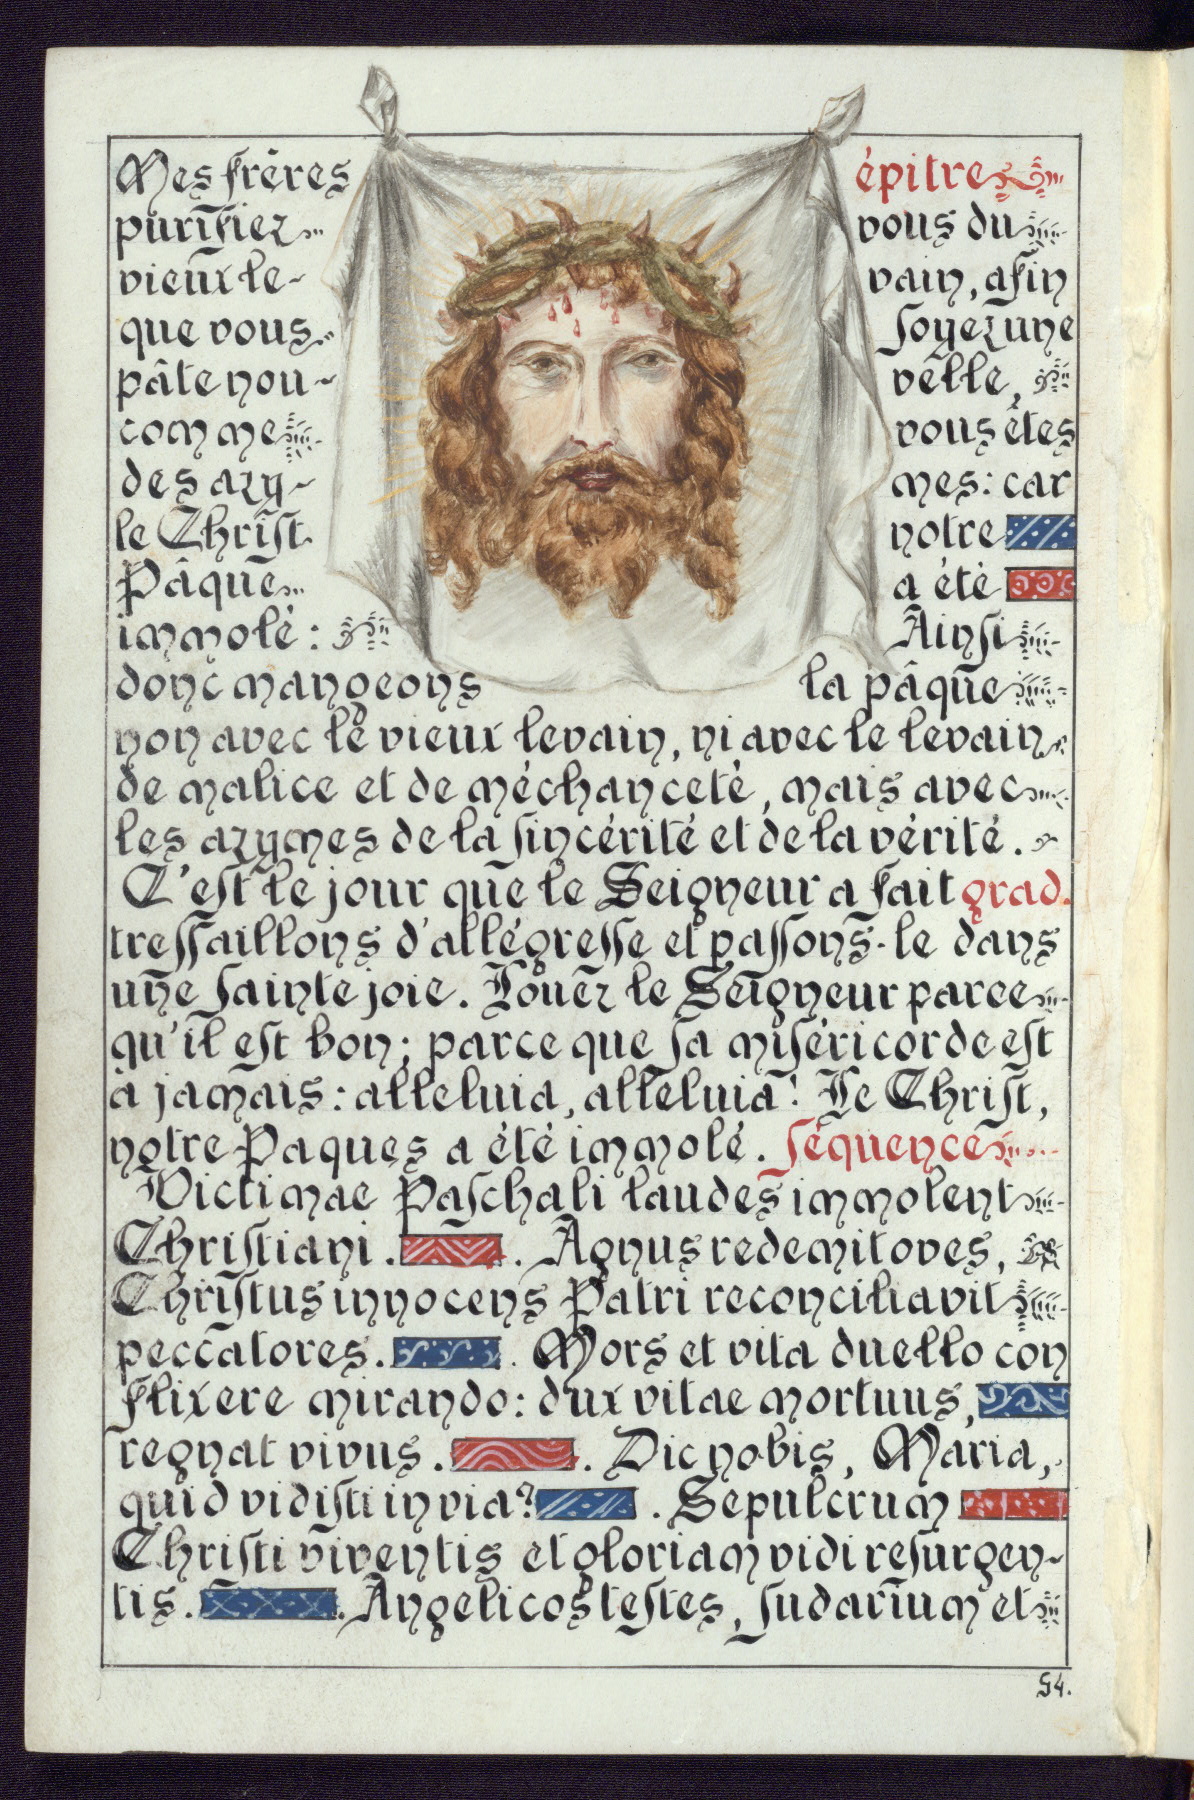 Mes frères épitre
purifiez vous du
vieux le- vain, afin
que vous soyez une
pâte nou- velle,
comme vous êtes
des azy- mes: car
le Christ notre
Pâque a été
immolé: Ainsi
donc mangeons la pâque
non avec le vieux levain, ni avec le levain
de malice et de méchanceté, mais avec
les azymes de la sincérité et de la vérité.
C'est le jour que le Seigneur a fait grad.
tressaillons d'allégresse et passons-le dans
une sainte joie. Louez le Seigneur parce
qu'il est bon; parce que sa miséricorde est
à jamais: alleluia, alleluia! Le Christ,
notre Paques a été immolé. séquence
Victimae Paschali laudes immolent
Christiani. Agnus redemit oves,
Christus innocens Patri reconciliavit
peccatores. Mors et vita duello con
flixere mirando: dux vitae mortuus,
regnat vivus. Dic nobis, Maria,
quid vidisti in via? Sepulcrum
Christi viventis et gloriam vidi resurgen-
tis. Angelicos testes, sudarium et
54.